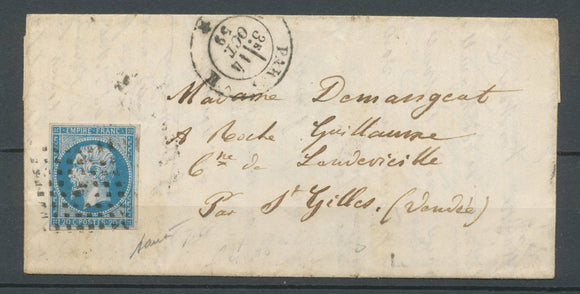 PAR
3E
14
OCT.
59
EMPIRE FRANC.
Madame Demangeat
à Roche Guillaume
Cne de Landevieille
Par St Gilles. (Vendée)